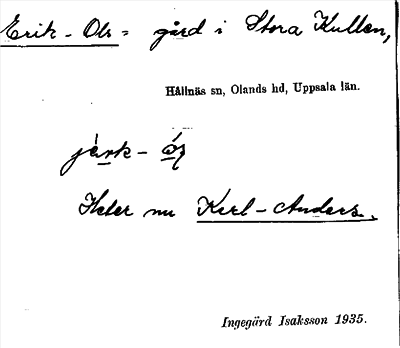 Erik-Ols = gård i Stora Kullen,
Hållnäs sn, Olands hd, Uppsala län.
jèrk-
Heter nu Karl-Anders.
Ingegärd Isaksson 1935.